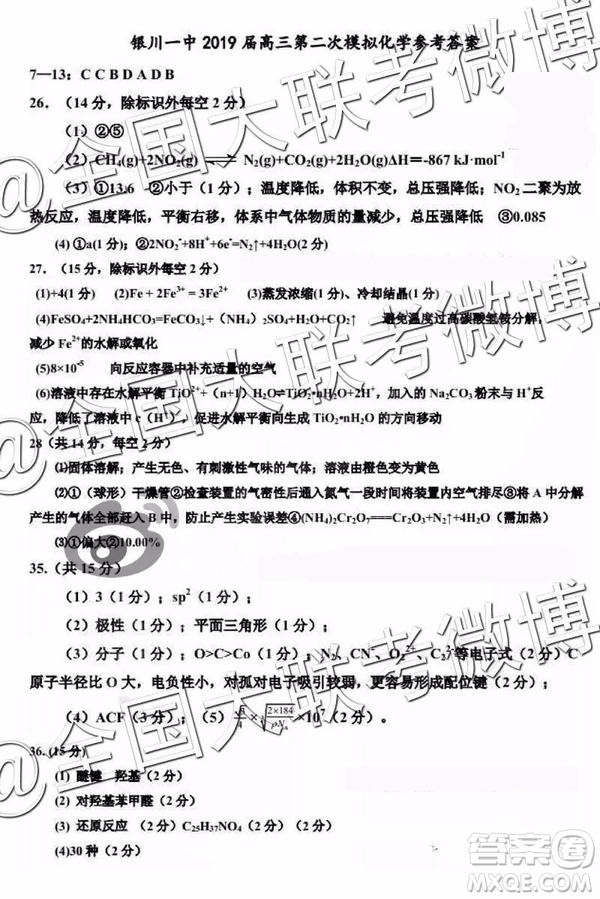 银川一中 2019 届高三第二次模拟化学参考答案
7—13：C C B D A D B
26．（14 分，除标识外每空 2 分）
（1）②⑤
（2）CH₄(g)+2NO₂(g) ⇌ N₂(g)+CO₂(g)+2H₂O(g)ΔH=-867 kJ·mol⁻¹
（3）①13.6 ②小于（1 分）；温度降低，体积不变，总压强降低；NO₂ 二聚为放
热反应，温度降低，平衡右移，体系中气体物质的量减少，总压强降低 ③0.085
(4) ①a(1 分)；②2NO₂⁻+8H⁺+6e⁻=N₂↑+4H₂O(2 分)
27．（15 分，除标识外每空 2 分）
(1)+4(1 分) (2)Fe + 2Fe³⁺ = 3Fe²⁺ (3)蒸发浓缩(1 分)、冷却结晶(1 分)
(4)FeSO4+2NH4HCO3=FeCO3↓+（NH4）2SO4+H2O+CO2↑ 避免温度过高碳酸氢铵分解，
减少 Fe²⁺的水解或氧化
(5)8×10⁻⁵ 向反应容器中补充适量的空气
(6)溶液中存在水解平衡 TiO²⁺+（n+1）H2O⇌TiO2•nH2O+2H⁺，加入的 Na2CO3 粉末与 H⁺反
应，降低了溶液中 c（H⁺），促进水解平衡向生成 TiO2•nH2O 的方向移动
28（共 14 分，每空 2 分）
⑴固体溶解；产生无色、有刺激性气味的气体；溶液由橙色变为黄色
⑵①（球形）干燥管②检查装置的气密性后通入氮气一段时间将装置内空气排尽③将 A 中分解
产生的气体全部赶入 B 中，防止产生实验误差④(NH₄)₂Cr₂O₇=Cr₂O₃+N₂↑+4H₂O（需加热）
⑶①偏大②10.00%
35.(共 15 分）
（1）3（1 分）；sp²（1 分）
（2）极性（1 分）；平面三角形（1 分）；
（3）分子（1 分）；O>C>Co（1 分）；N₂、CN⁻、O₂²⁺、C₂²⁻等电子式（2 分）C
原子半径比 O 大，电负性小，对孤对电子吸引较弱，更易形成配位键（2 分）；
（4）ACF（3 分）；（5）
×10⁷（2 分）。
36. (15 分)
(1) 醚键 羟基（2 分）
(2) 对羟基苯甲醛（2 分）
(3) 还原反应 （2 分）C₂₅H₃₇NO₄（2 分）
(4)30 种（2 分）
@全国大联考微博
@全国大联考微博
答案圈
MXQE.COM